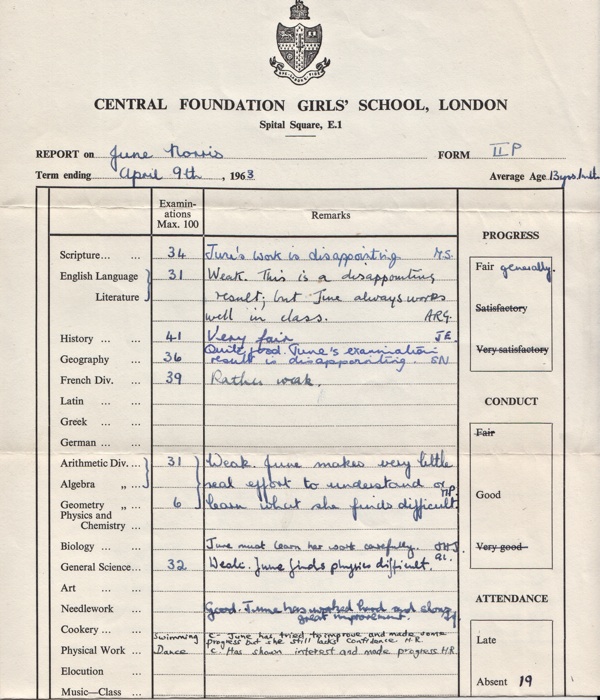 CENTRAL FOUNDATION GIRLS' SCHOOL, LONDON
Spital Square, E.1
REPORT on June Norris FORM II P
Term ending April 9th, 1963 Average Age 13yrs
Examin-
ations
Max. 100
Remarks
Scripture... ... 34 June's work is disappointing. M.S.
English Language 31 Weak. This is a disappointing
Literature result; but June always works
well in class. ARG.
History ... ... 41 Very fair JE
Geography ... 36 Quite good. June's examination
result is disappointing. SN
French Div. ... 39 Rather weak.
Latin ... ...
Greek ... ...
German ... ...
Arithmetic Div. ... 31 Weak. June makes very little
Algebra „ ... real effort to understand or
Geometry „ ... 6 learn what she finds difficult.
Physics and
Chemistry ...
Biology ... June must learn her work carefully.
General Science... 32 Weak. June finds physics difficult.
Art ... ...
Needlework ... Good. June has worked hard and
great improvement.
Cookery ...
Swimming C- June has tried to improve and made some
progress but she still lacks confidence. H.R.
Physical Work ... Dance C. Has shown interest and made progress H.R.
Elocution ...
Music—Class ...
PROGRESS
Fair generally.
Satisfactory
Very satisfactory
CONDUCT
Fair
Good
Very good
ATTENDANCE
Late
Absent 19